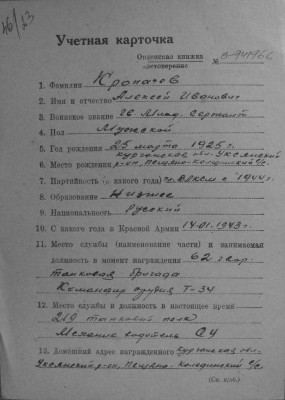 46/23
Учетная карточка
Орденская книжка
удостоверение
№ В-941966
1. Фамилия Кропачов
2. Имя и отчество Алексей Иванович
3. Воинское звание Гв. Млад. Сержант
4. Пол Мужской
5. Год рождения 25 марта 1925 г.
Курганская обл. Уксянский
6. Место рождения р-он, Пещано-Колединский с/с.
7. Партийность (с какого года) ВЛКСМ с 1944 г.
8. Образование Низшее
9. Национальность Русский
10. С какого года в Красной Армии 14-01-1943 г.
11. Место службы (наименование части) и занимаемая
должность в момент награждения 62 гвар.
танковая бригада
Командир орудия Т-34
12. Место службы и должность в настоящее время
219 танковый полк
Механик водитель СУ
13. Домашний адрес награжденного Курганская обл.
Уксянский р-он, Пещано-Колединский с/с.
(См. н/об.)